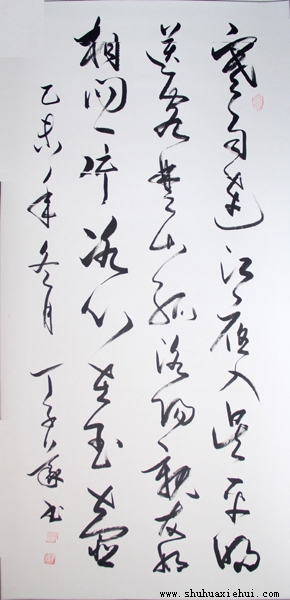 寒雨連江夜入吳平明
送客楚山孤洛陽親友如
相問一片冰心在玉壺
乙未年冬月 丁子 书
www.shuhuaxiehui.com